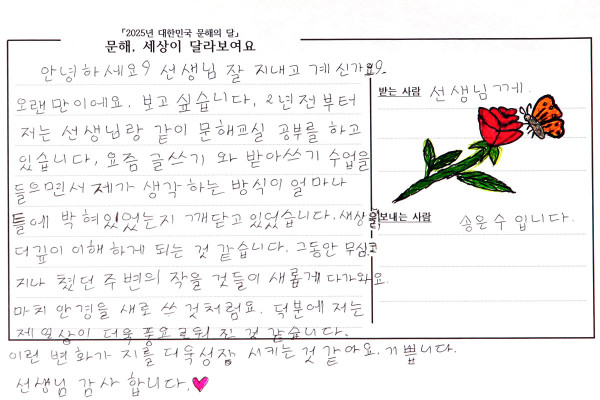 「2025년 대한민국 문해의 달」
문해, 세상이 달라보여요
안녕하세요? 선생님 잘 지내고 계신가요?
오랜만이에요. 보고 싶습니다. 2년전부터
저는 선생님랑 같이 문해교실 공부를 하고
있습니다. 요즘 글쓰기 와 받아쓰기 수업을
들으면서 제가 생각하는 방식이 얼마나
틀에 박혀있었는지 깨닫고 있었습니다. 세상을
더 깊이 이해하게 되는 것 같습니다. 그동안 무심코
지나 쳤던 주변의 작을 것들이 새롭게 다가와요.
마치 안경을 새로 쓰 것처럼요. 덕분에 저는
제 일상이 더욱 풍요로워 진 것 같습니다.
이런 변화가 지를 더욱성장 시키는 것 같아요. 기쁩니다.
선생님 감사 합니다.
받는 사람 선생님께.
보내는 사람
송은수 입니다.